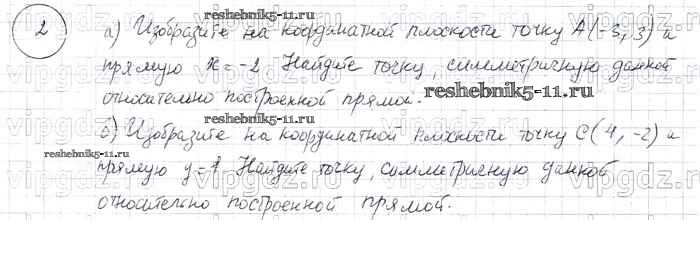 reshebnik5-11.ru
2 а) Изобразите на координатной плоскости точку А(-5, 3) и
прямую x = -2. Найдите точку, симметричную данной
относительно построенной прямой. reshebnik5-11.ru
б) Изобразите на координатной плоскости точку С(4, -2) и
reshebnik5-11.ru
прямую y=1. Найдите точку, симметричную данной
относительно построенной прямой.